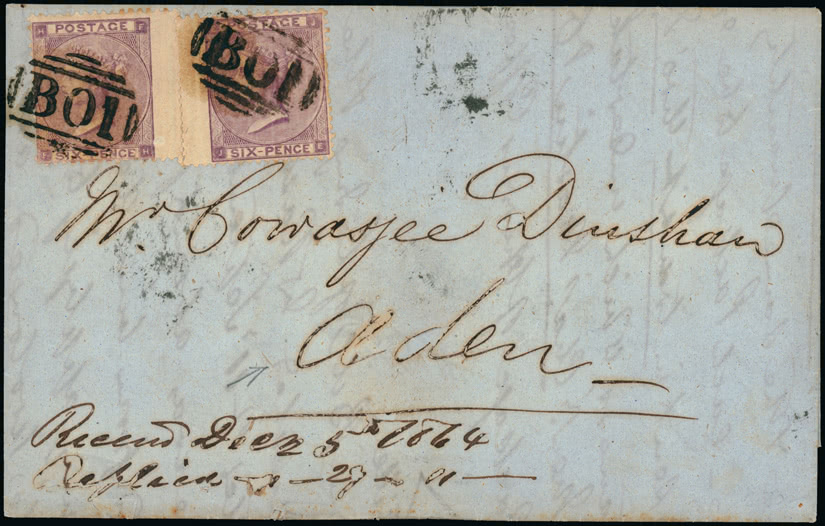 H POSTAGE F
POSTAGE J
B01
B01
SIX-PENCE H
J SIX-PENCE E
Mr Cowasjee Dinshaw
Aden
Received Decr 5th 1864
Replied " 29 "